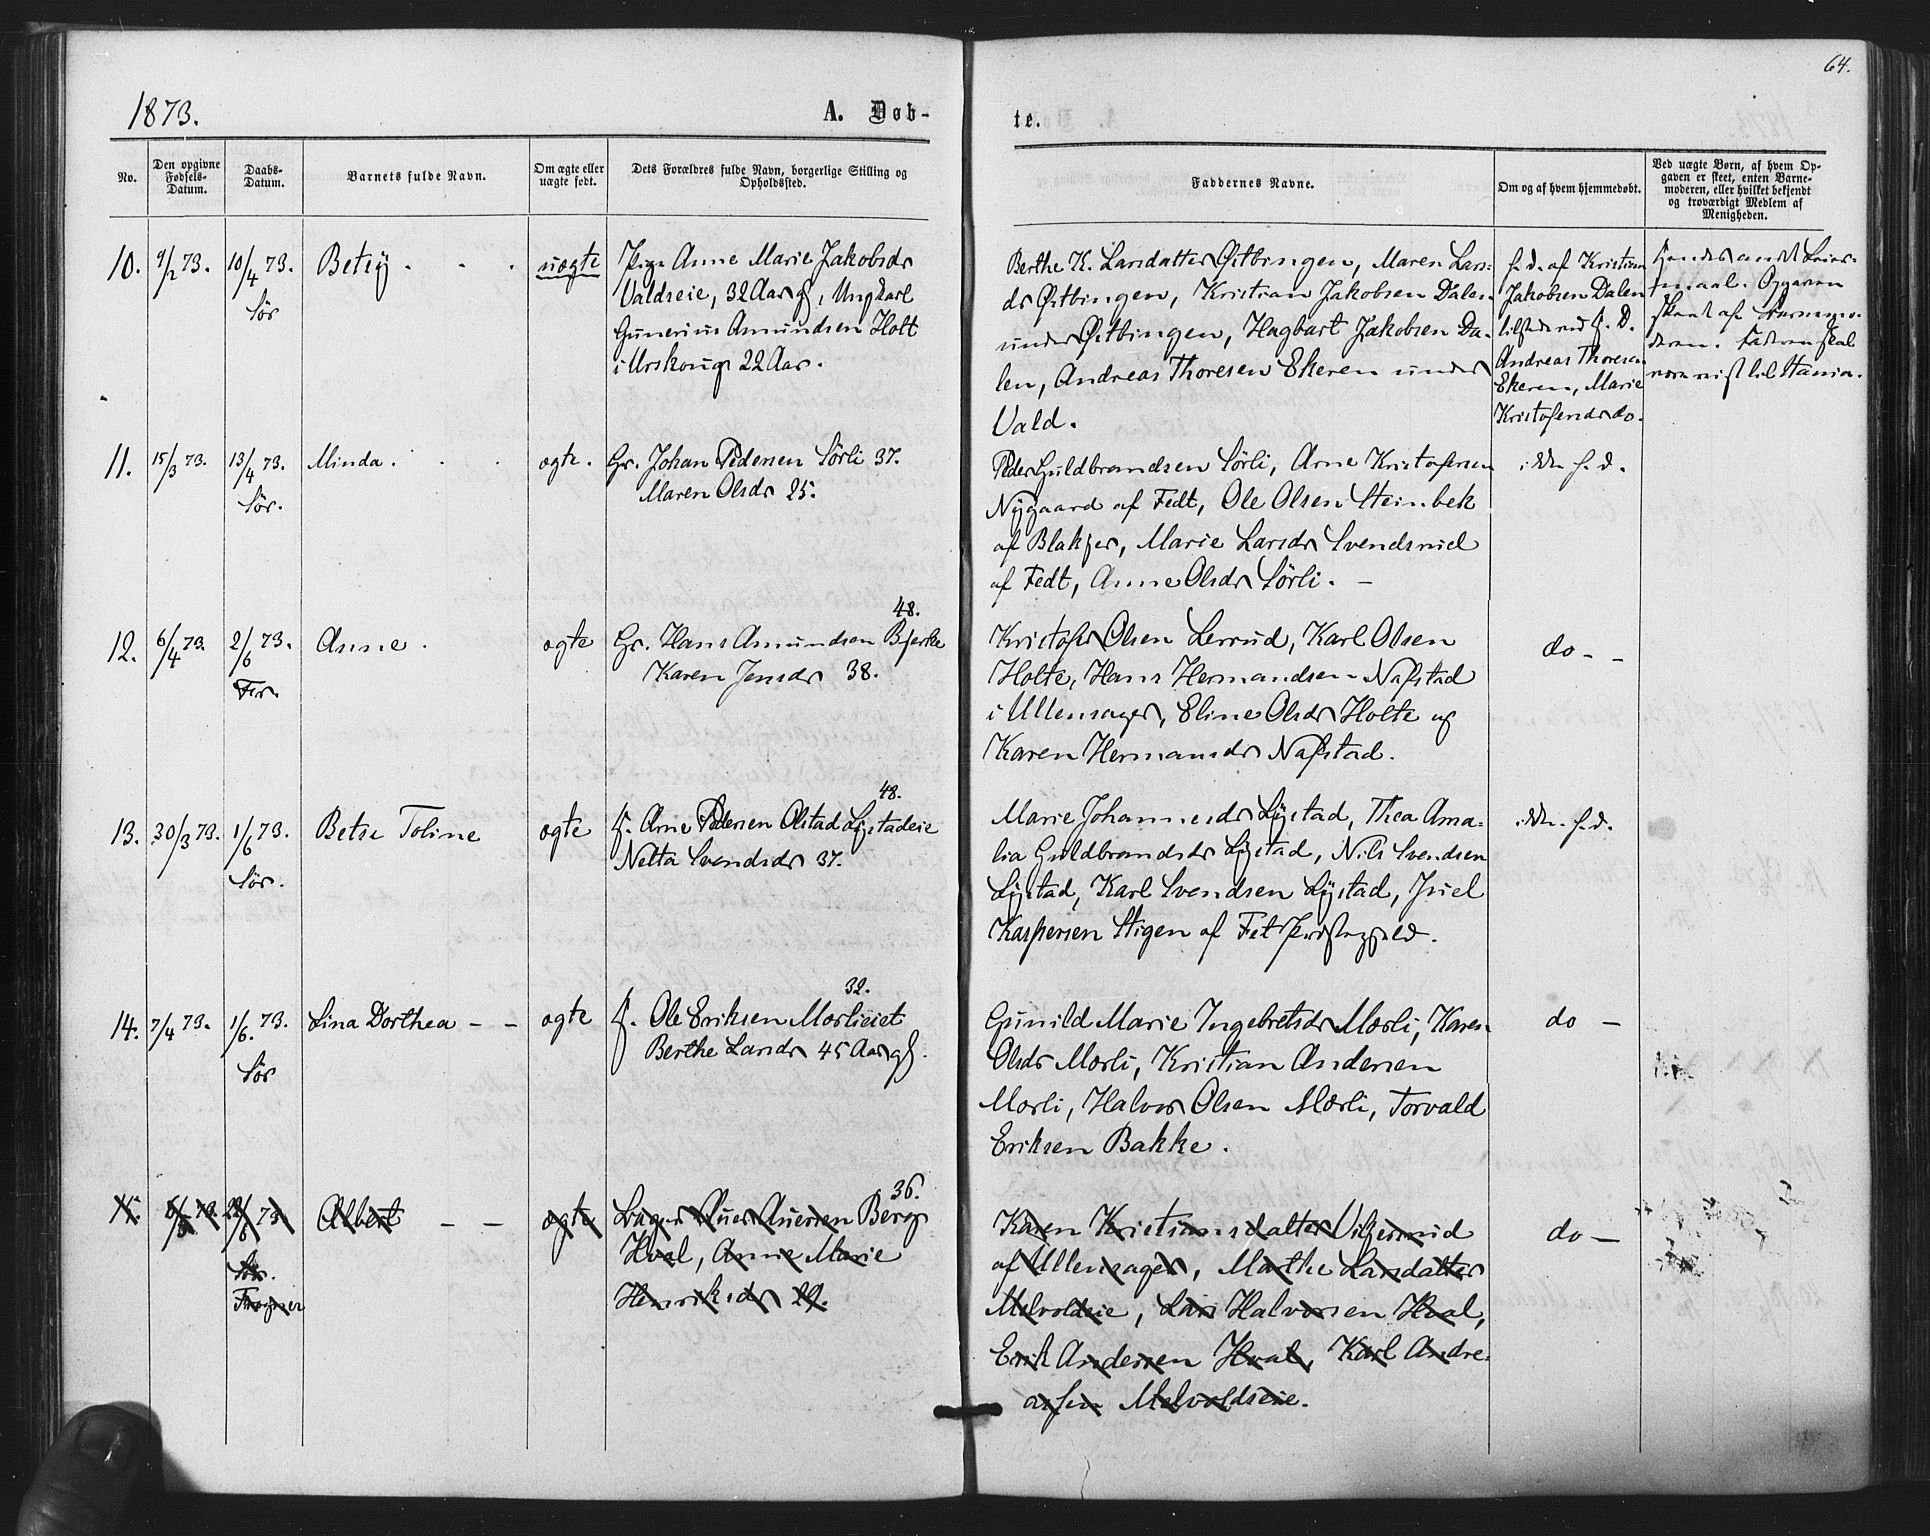 64.
1873.
A. Døb-
te.
No.
Den opgivne
Fødsels-
Datum.
Daabs-
Datum.
Barnets fulde Navn.
Om ægte eller
uægte født.
Dets Forældres fulde Navn, borgerlige Stilling og
Opholdssted.
Faddernes Navne.
Om og af hvem hjemmedøbt.
Ved uægte Børn, af hvem Op-
gaven er skeet, enten Barne-
moderen, eller hvilket bekjendt
og troværdigt Medlem af
Menigheden.
10. 9/2 73. 10/4 73. Betsÿ . . .
Sør
uægte
Pige Anne Marie Jakobsdr
Valdseie, 32 Aar g, Ungkarl
Gunerius Amundsen Holt
i Urskoug 22 Aar.
Berthe K. Larsdatter Østbingen, Maren Lars-
dr Østbingen, Kristian Jakobsen Dalen
under Østbingen, Hagbart Jakobsen Da-
len, Andreas Thoresen Ekeren under
Vald.
h. d. af Kristian
Jakobsen Dalen
tilstede ved H. D.
Andreas Thoresen
Ekeren, Marie
Kristofersdr do.
Hendes andet Leier-
maal. Opgaven
skeet af Barnemo-
deren. Faderen skal
være reist til
11. 15/3 73. 13/4 73. Minda . . .
Sør.
ægte.
Gr. Johan Pedersen Sørli 37.
Maren Olsdr 25.
Peder Guldbrandsen Sørli, Arne Kristofersen
Nÿgaard af Fedt, Ole Olsen Steinbek
af Blakjer, Marie Larsdr Svendsrud
af Fedt, Anne Olsdr Sørli. –
ikke h. d.
12. 6/4 73. 2/6 73. Anne .
Fr.
ægte
48.
Gr. Hans Amundsen Bjerke
Karen Jensdr 38.
Kristofer Olsen Lerrud, Karl Olsen
Holte, Hans Hermandsen Nafstad
i Ullensager, Eline Olsdr Holte og
Karen Hermansdr Nafstad.
do - -
13. 30/3 73. 1/6 73. Betse Toline
Sør.
ægte
48.
f. Arne Pedersen Olstad Lÿstadeie
Netta Svendsdr 37.
Marie Johannesdr Lÿstad, Thea Ama-
lia Guldbrandsdr Lÿstad, Nils Svendsen
Lÿstad, Karl Svendsen Lÿstad, Juel
Kaspersen Stigen af Fet Præstegjeld.
ikke h. d.
14. 7/4 73. 1/6. 73. Lina Dorthea – –
Sør
ægte
32.
f. Ole Eriksen Morlieiet
Berthe Larsdr 45 Aar g.
Gunild Marie Ingebretsdr Morli, Karen
Olsdr Morli, Kristian Andersen
Morli, Halvor Olsen Morli, Torvald
Eriksen Bakke.
do –
15. 73. 73 Albert – –
Sør.
Frogner
ægte
36.
Auensen Berg
Hval, Anne Marie
Henriksdr 29.
Karen Kristiansdatter Vilgerud
af Ullensager, Marthe Larsdatter
Melvoldseie, Lars Halvorsen Hval,
Erik Andersen Hval, Karl Andre-
assen Melvoldseie.
do –